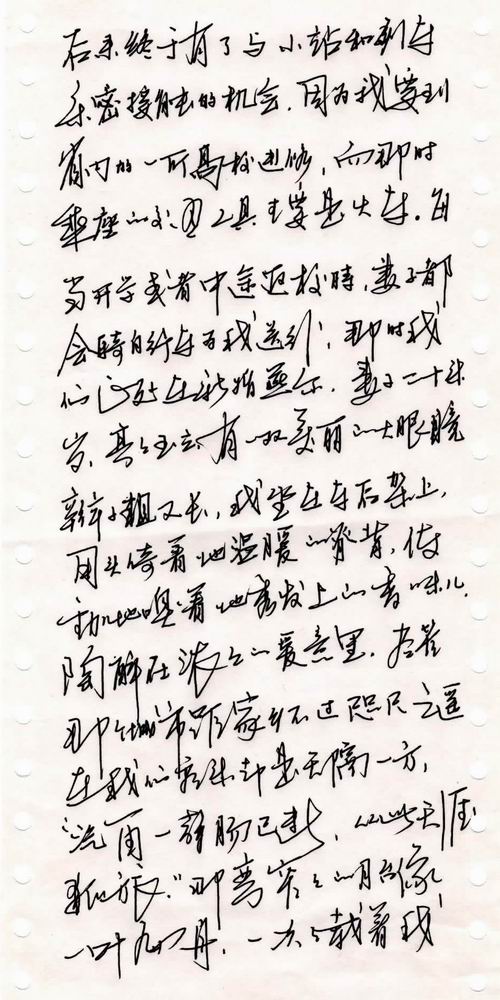 后来终于有了与小站和列车
亲密接触的机会。因为我要到
省内的一所高校进修，而那时
乘座的交通工具主要是火车。每
当开学或者中途返校时，妻子都
会骑自行车为我送行，那时我
们正处在新婚燕尔，妻子二十来
岁，高高 有一双美丽的大眼睛
辫子粗又长，我坐在车后架上，
用头倚着她温暖的脊背，
动地嗅着她秀发上的香味儿，
陶醉在浓浓的爱意里。尽管
那个城市距家乡不过咫尺之遥
在我们看来却是天隔一方，
“汽笛一声肠已断，从此天涯
孤旅”。那弯窄窄的月台像
一叶九 舟，一次次载着我